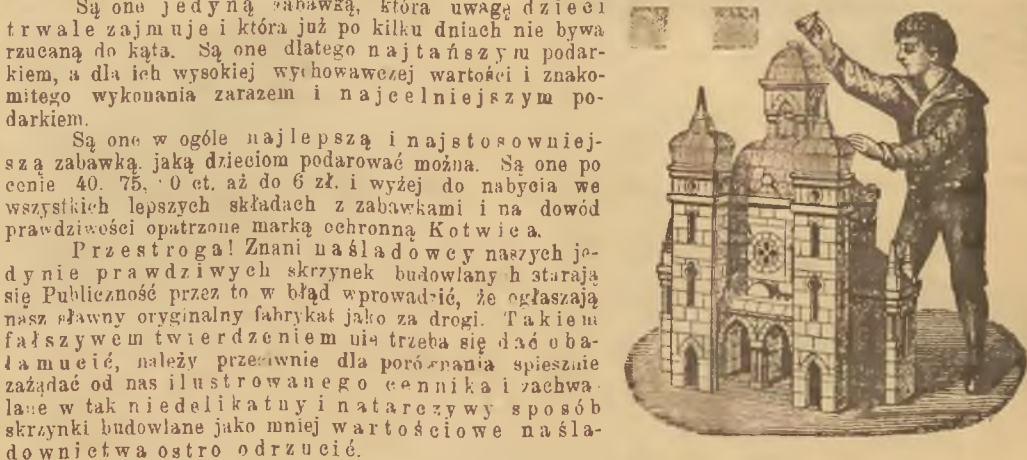 Są one jedyną zabawką, która uwagę dzieci
trwale zajmuje i która już po kilku dniach nie bywa
rzucaną do kąta. Są one dlatego najtańszym podar-
kiem, a dla ich wysokiej wychowawczej wartości i znako-
mitego wykonania zarazem i najcelniejszym po-
darkiem.
Są one w ogóle najlepszą i najstosowniej-
szą zabawką. jaką dzieciom podarować można. Są one po
cenie 40. 75, 0 ct. aż do 6 zł. i wyżej do nabycia we
wszystkich lepszych składach z zabawkami i na dowód
prawdziwości opatrzone marką ochronną Kotwica.
Przestroga! Znani naśladowcy naszych je-
dynie prawdziwych skrzynek budowlanych starają
się Publiczność przez to w błąd wprowadzić, że ogłaszają
nasz sławny oryginalny fabrykat jako za drogi. Takiem
fałszywem twierdzeniem nie trzeba się dać oba-
łamucić, należy przeciwnie dla porównania spiesznie
zażądać od nas ilustrowanego cennika i zachwa-
lane w tak niedelikatny i natarczywy sposób
skrzynki budowlane jako mniej wartościowe naśla-
downictwa ostro odrzucić.